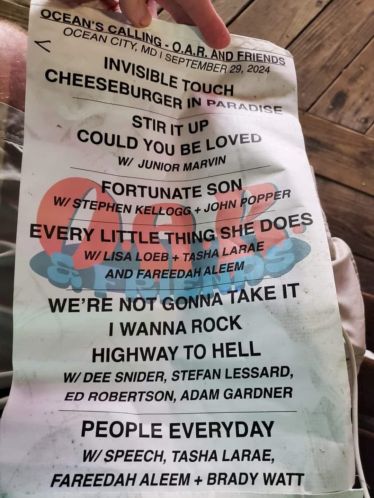 OCEAN'S CALLING - O.A.R. AND FRIENDS
OCEAN CITY, MD | SEPTEMBER 29, 2024
INVISIBLE TOUCH
CHEESEBURGER IN PARADISE
STIR IT UP
COULD YOU BE LOVED
W/ JUNIOR MARVIN
FORTUNATE SON
W/ STEPHEN KELLOGG + JOHN POPPER
EVERY LITTLE THING SHE DOES
W/ LISA LOEB + TASHA LARAE
AND FAREEDAH ALEEM
O.A.R.
& FRIENDS
WE'RE NOT GONNA TAKE IT
I WANNA ROCK
HIGHWAY TO HELL
W/ DEE SNIDER, STEFAN LESSARD,
ED ROBERTSON, ADAM GARDNER
PEOPLE EVERYDAY
W/ SPEECH, TASHA LARAE,
FAREEDAH ALEEM + BRADY WATT